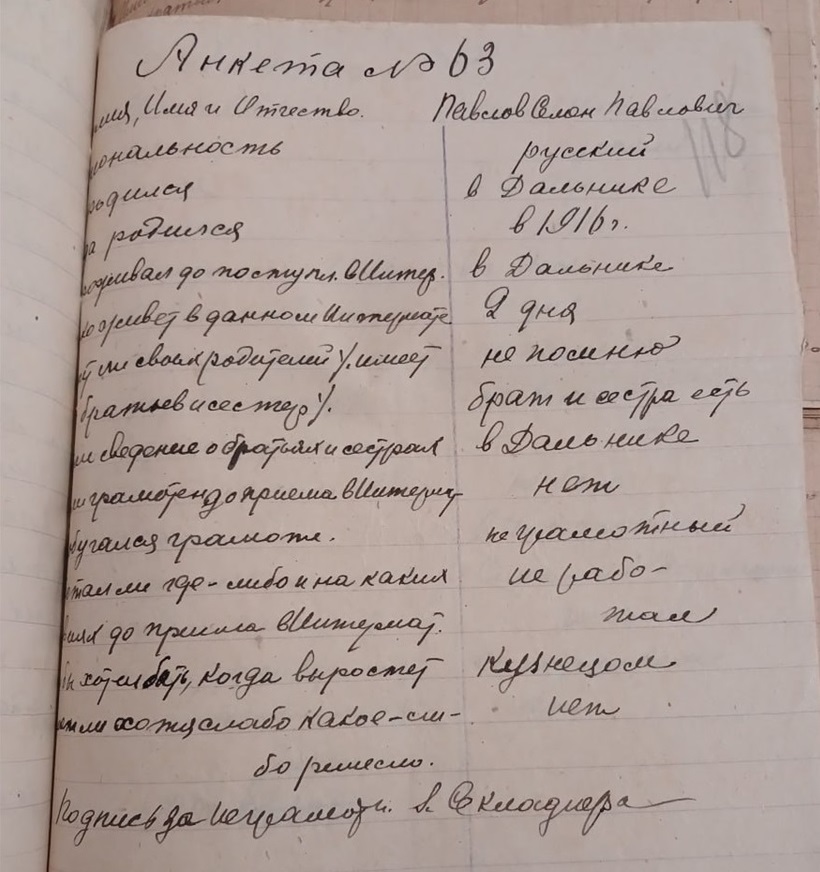 Анкета № 63
118
мия, Имя и Отчество. Павлов Семён Павлович
иональность русский
родился в Дальнике
да родился в 1916 г.
роживал до поступл. в Интер. в Дальнике
ко живет в данном Интернате 2 дня
ит ли своих родителей % имеет не помню
братьев и сестер %. брат и сестра есть
ли сведение о братьях и сестрах в Дальнике
ли грамотен до приема в Интерн. нет
бучался грамоте. не грамотный
отал ли где-либо и на каких не рабо-
виях до приема в Интернат. тал
бы хотел быть, когда выростет кузнецом
ет ли хотя слабо какое-ли- нет
бо ремесло.
Подпись за неграмотн.